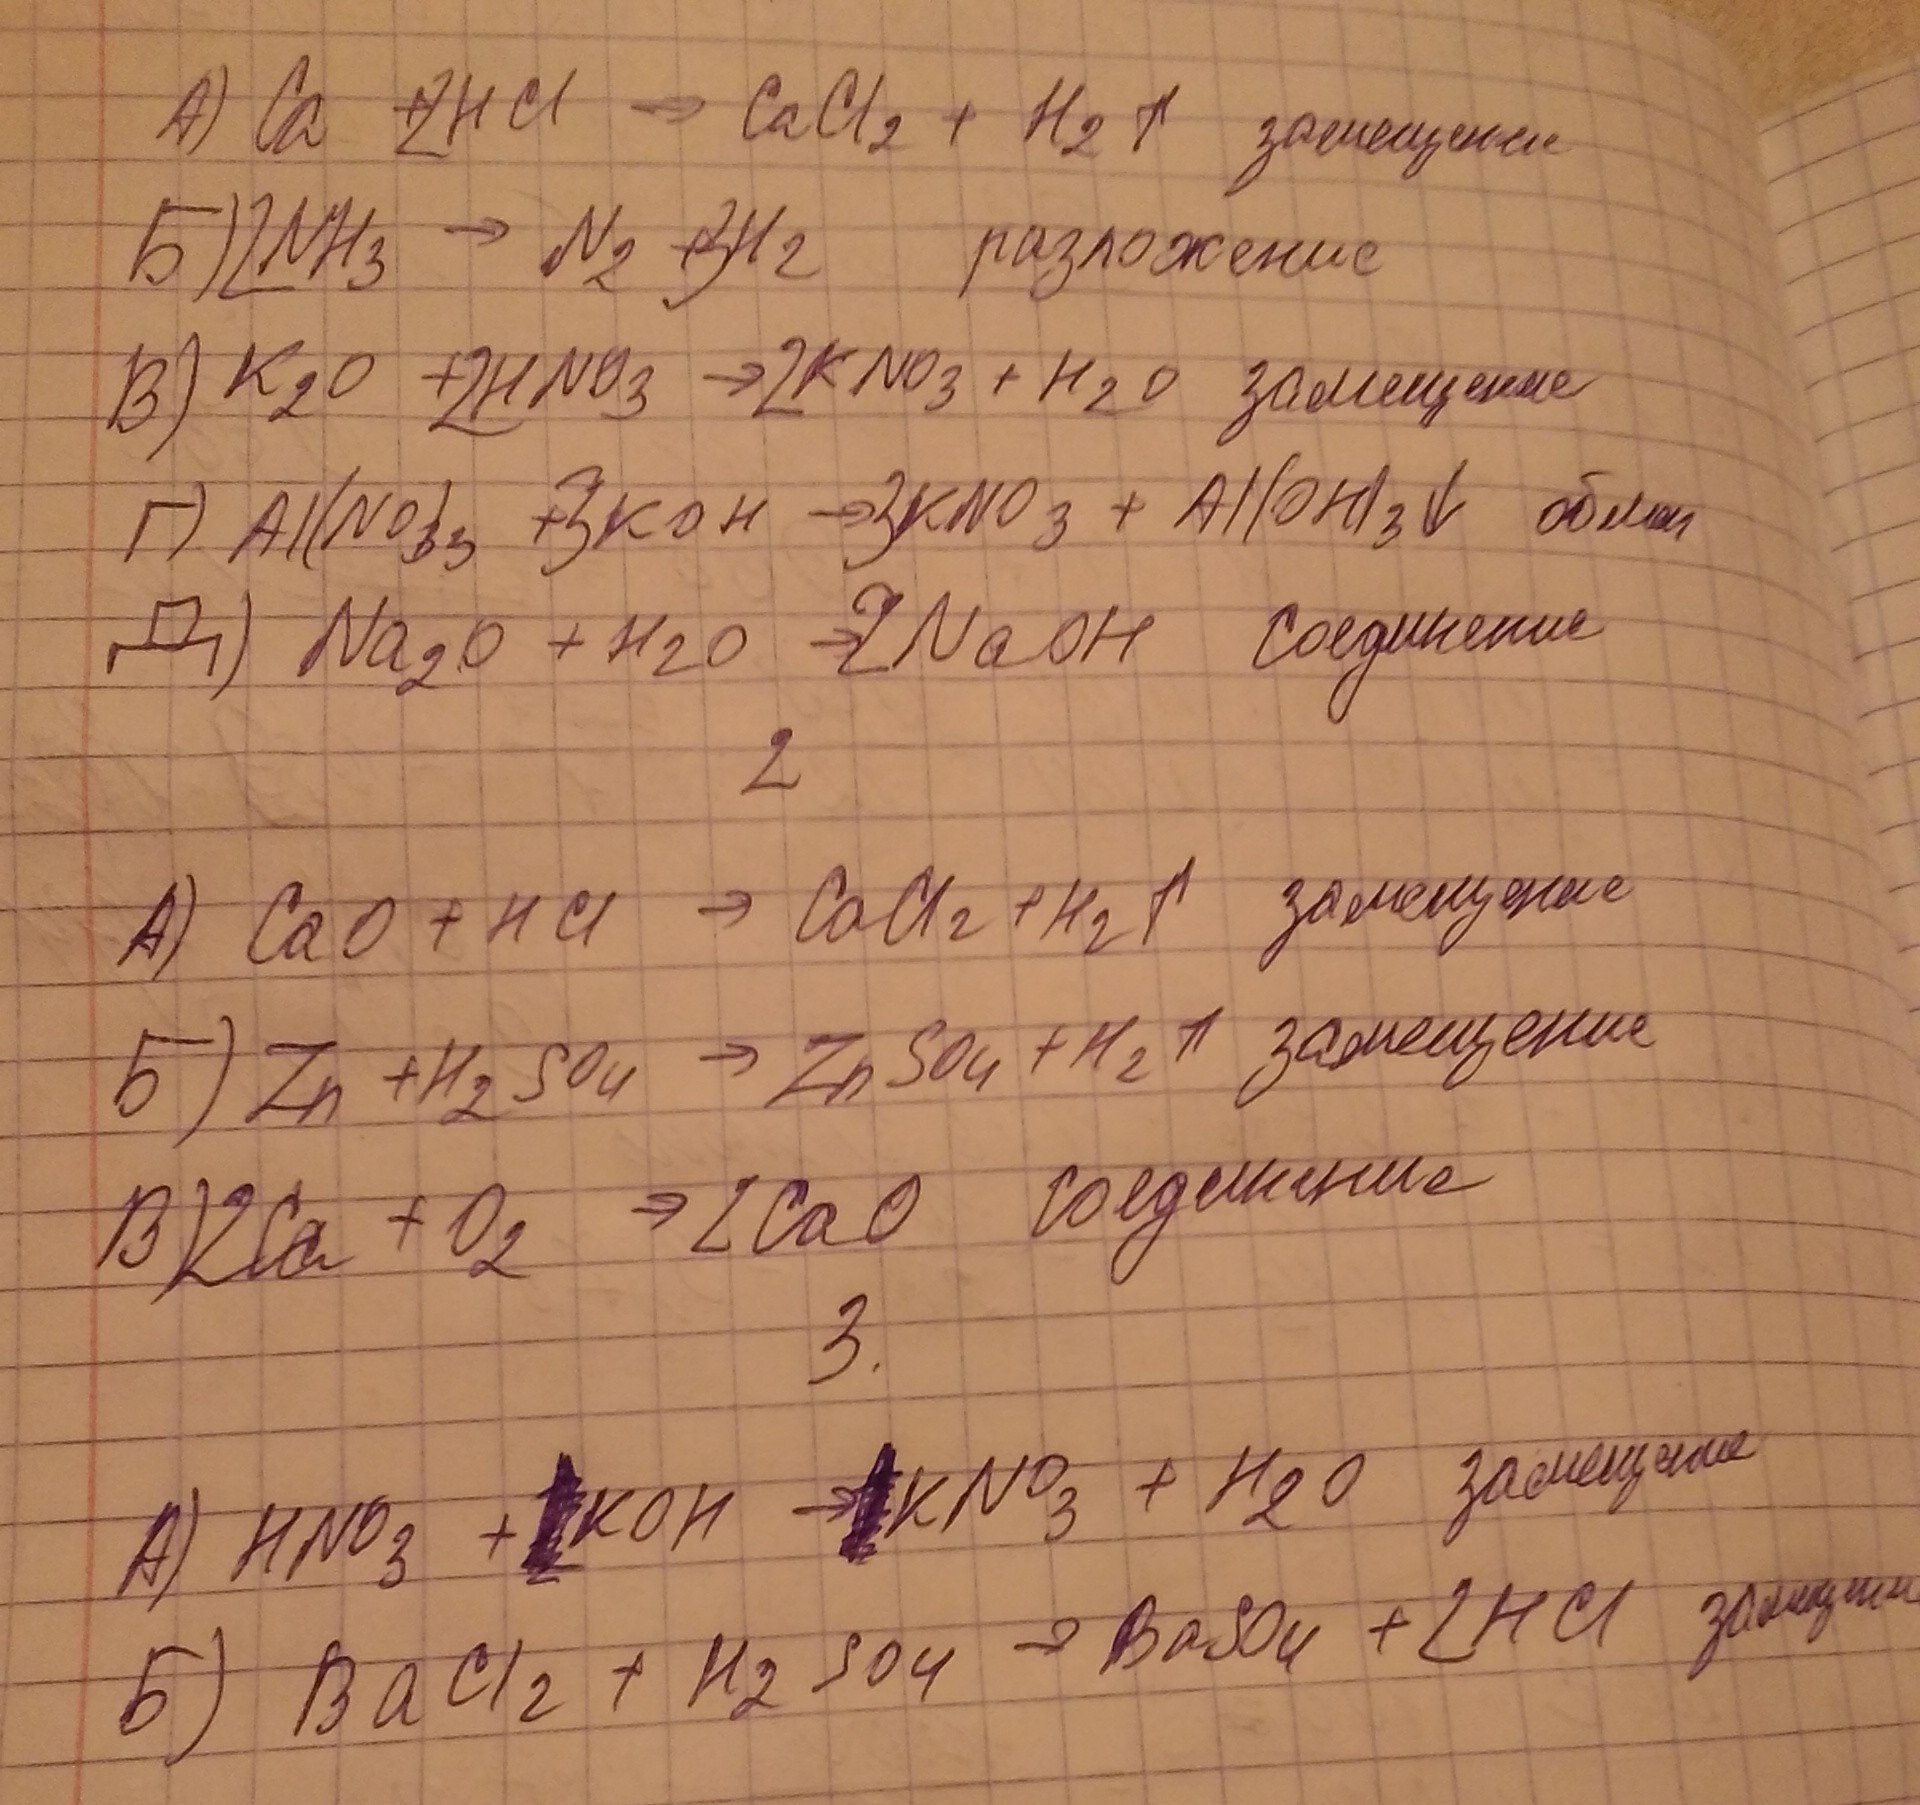 А) Ca + 2HCl → CaCl2 + H2↑ замещение
Б) 2NH3 → N2 + 3H2 разложение
В) K2O + 2HNO3 → 2KNO3 + H2O замещение
Г) Al(NO3)3 + 3KOH → 3KNO3 + Al(OH)3↓ обмен
Д) Na2O + H2O → 2NaOH соединение
2
А) CaO + HCl → CaCl2 + H2↑ замещение
Б) Zn + H2SO4 → ZnSO4 + H2↑ замещение
В) 2Ca + O2 → 2CaO соединение
3.
А) HNO3 + KOH → KNO3 + H2O замещение
Б) BaCl2 + H2SO4 → BaSO4 + 2HCl замещени